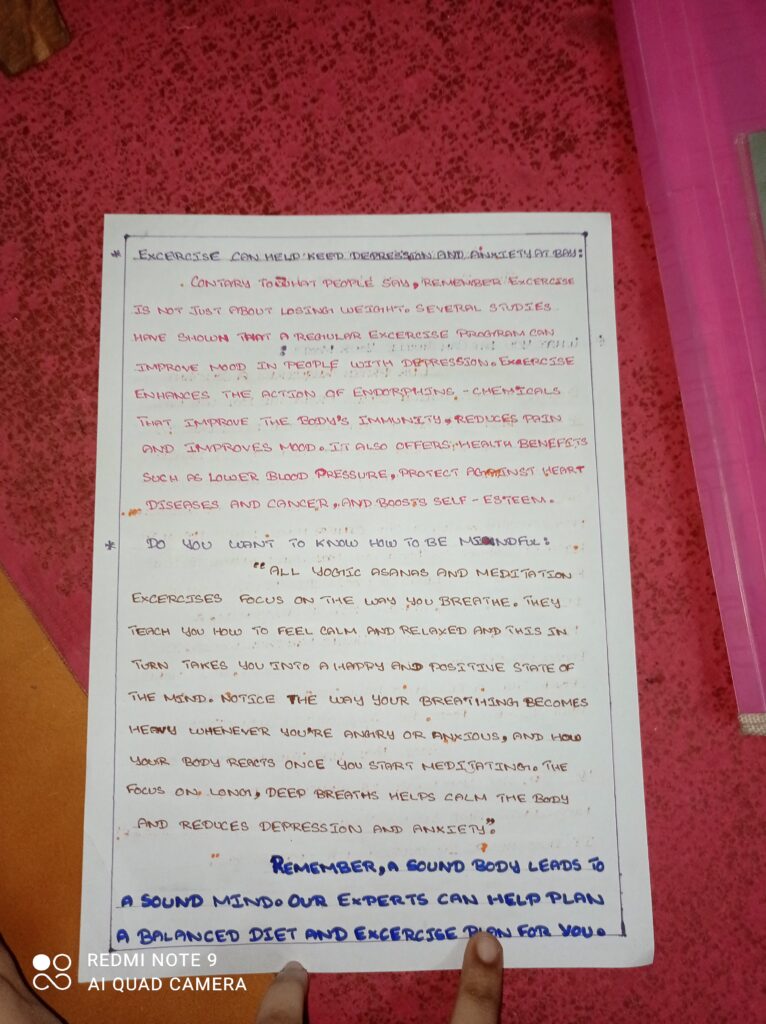 * EXCERCISE CAN HELP KEEP DEPRESSION AND ANXIETY AT BAY:
CONTARY TO WHAT PEOPLE SAY, REMEMBER EXCERCISE
IS NOT JUST ABOUT LOSING WEIGHT. SEVERAL STUDIES
HAVE SHOWN THAT A REGULAR EXCERCISE PROGRAM CAN
IMPROVE MOOD IN PEOPLE WITH DEPRESSION. EXERCISE
ENHANCES THE ACTION OF ENDORPHINS - CHEMICALS
THAT IMPROVE THE BODY'S IMMUNITY, REDUCES PAIN
AND IMPROVES MOOD. IT ALSO OFFERS HEALTH BENEFITS
SUCH AS LOWER BLOOD PRESSURE, PROTECT AGAINST HEART
DISEASES AND CANCER, AND BOOSTS SELF - ESTEEM.
* DO YOU WANT TO KNOW HOW TO BE MINDFUL:
"ALL YOGIC ASANAS AND MEDITATION
EXCERCISES FOCUS ON THE WAY YOU BREATHE. THEY
TEACH YOU HOW TO FEEL CALM AND RELAXED AND THIS IN
TURN TAKES YOU INTO A HAPPY AND POSITIVE STATE OF
THE MIND. NOTICE THE WAY YOUR BREATHING BECOMES
HEAVY WHENEVER YOU'RE ANGRY OR ANXIOUS, AND HOW
YOUR BODY REACTS ONCE YOU START MEDITATING. THE
FOCUS ON LONG, DEEP BREATHS HELPS CALM THE BODY
AND REDUCES DEPRESSION AND ANXIETY".
REMEMBER, A SOUND BODY LEADS TO
A SOUND MIND. OUR EXPERTS CAN HELP PLAN
A BALANCED DIET AND EXCERCISE PLAN FOR YOU.
REDMI NOTE 9
AI QUAD CAMERA